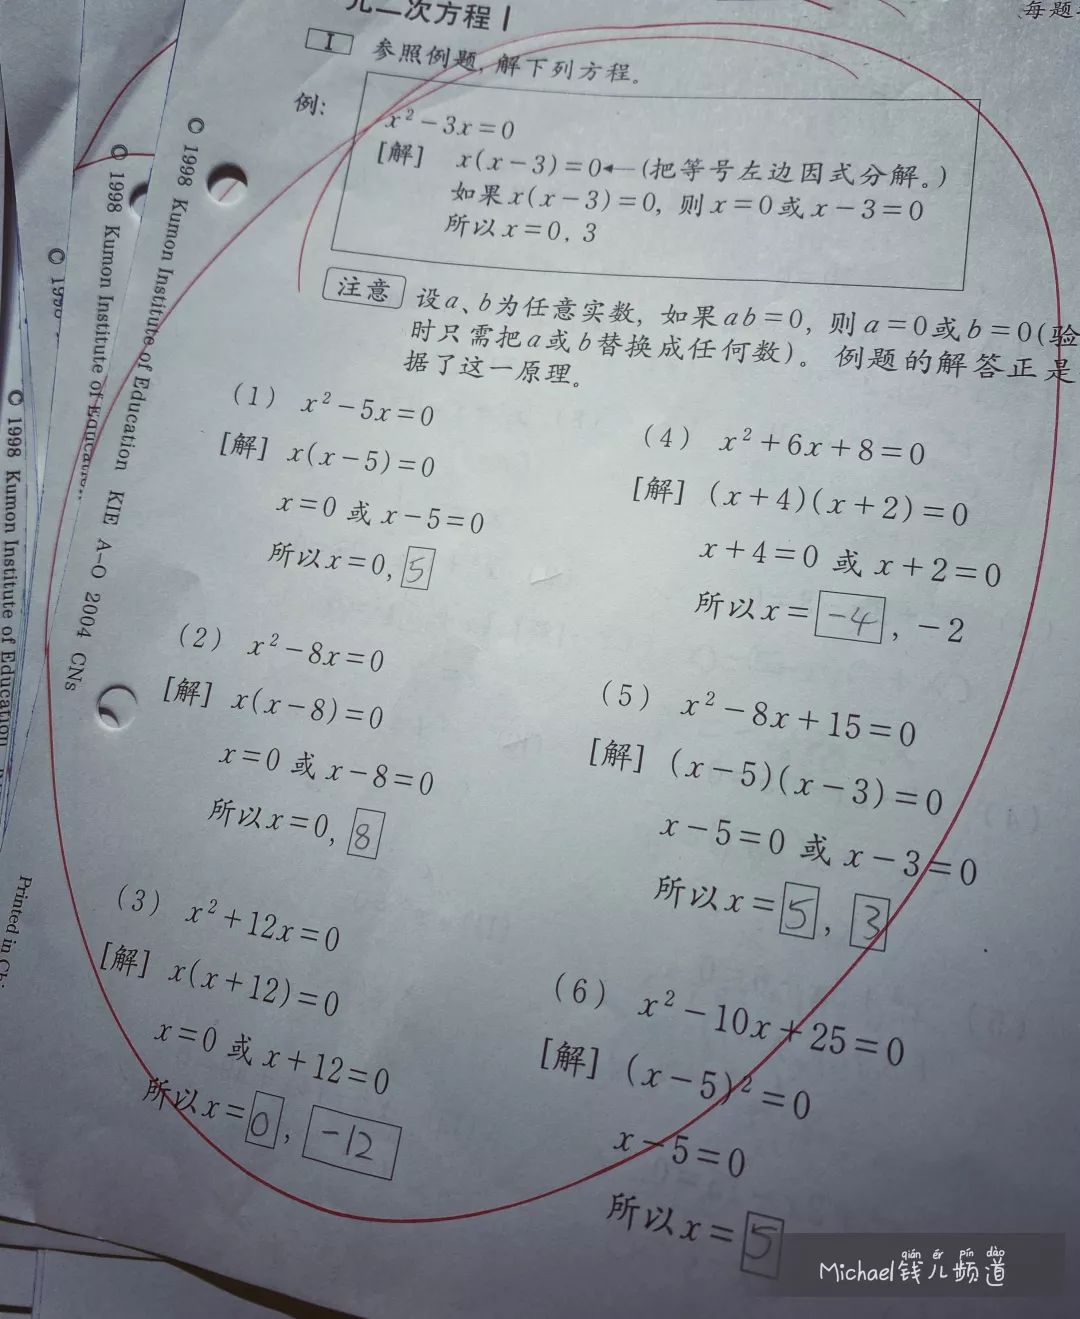 元二次方程 I
每题
I 参照例题, 解下列方程。
例:
x² − 3x = 0
[解] x(x − 3) = 0 ← (把等号左边因式分解。)
如果 x(x − 3) = 0, 则 x = 0 或 x − 3 = 0
所以 x = 0, 3
注意 设 a、b 为任意实数, 如果 ab = 0, 则 a = 0 或 b = 0 (验
时只需把 a 或 b 替换成任何数)。例题的解答正是
据了这一原理。
(1) x² − 5x = 0
[解] x(x − 5) = 0
x = 0 或 x − 5 = 0
所以 x = 0, 5
(2) x² − 8x = 0
[解] x(x − 8) = 0
x = 0 或 x − 8 = 0
所以 x = 0, 8
(3) x² + 12x = 0
[解] x(x + 12) = 0
x = 0 或 x + 12 = 0
所以 x = 0, −12
(4) x² + 6x + 8 = 0
[解] (x + 4)(x + 2) = 0
x + 4 = 0 或 x + 2 = 0
所以 x = −4, −2
(5) x² − 8x + 15 = 0
[解] (x − 5)(x − 3) = 0
x − 5 = 0 或 x − 3 = 0
所以 x = 5, 3
(6) x² − 10x + 25 = 0
[解] (x − 5)² = 0
x − 5 = 0
所以 x = 5
© 1998 Kumon Institute of Education KIE A-O 2004 CNs
© 1998 Kumon Institute of Education
© 199
© 1998 Kumon Institute of Education
Printed in Ch
qián ér pín dào
Michael钱儿频道